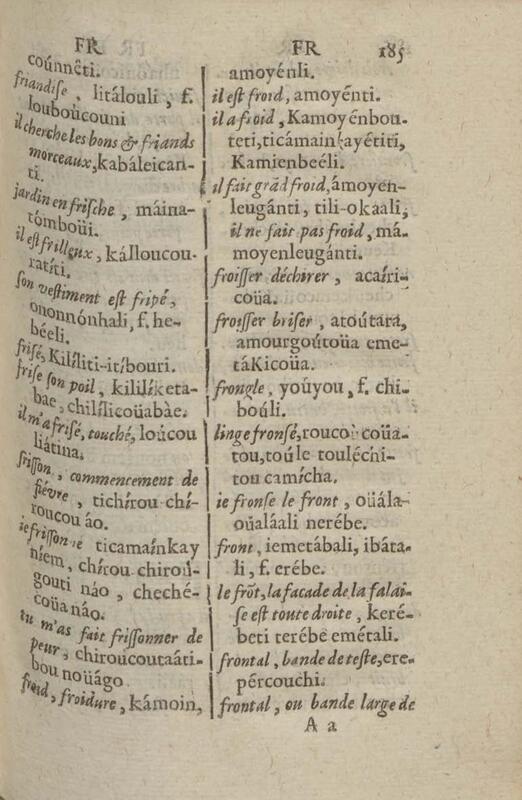 FR
coúnnêti.
friandise, litálouli, f.
louboúcouni
il cherche les bons & friands
morceaux, kabáleican-
ti.
jardin en frische, máina-
tomboüi.
il est frilleux, kálloucou-
ratíti.
son vestiment est fripé,
ononnónhali, f. he-
béeli.
frisé, Kilíliti-itíbouri.
frise son poil, kililíketa-
bae, chilílicoüabàe.
il m'a frisé, touché, loúcou
liátina.
frisson, commencement de
fiévre, tichírou chí-
roucou áo.
ie frissonne ticamaínkay
níem, chírou chiroú-
gouti náo, cheché-
coüa náo.
tu m'as fait frissonner de
peur, chiroúcoutaáti-
bou noüágo.
froid, froidure, kámoin,
FR 185
amoyénli.
il est froid, amoyénti.
il a froid, Kamoyénbou-
teti, ticámainkayétiti,
Kamienbeéli.
il fait grãd froid, ámoyen-
leugánti, tili-okaáli,
il ne fait pas froid, má-
moyenleugánti.
froisser déchirer, acaíri-
coüa.
froisser briser, atoútara,
amourgoútoüa eme-
táKicoüa.
frongle, yoúyou, f. chi-
boúli.
linge fronsé, roucou coüa-
tou, toúle touléchi-
tou camícha.
ie fronse le front, oüála-
oüaláali nerébe.
front, iemetábali, ibáta-
li, f. erébe.
le frõt, la facade de la falai-
se est toute droite, keré-
beti terébe emétali.
frontal, bande de teste, ere-
pércouchi.
frontal, ou bande large de
A a